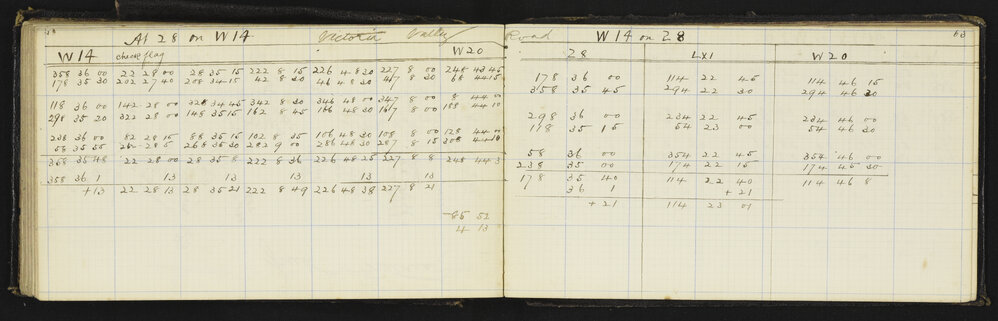 At 28 on W14 Victoria Valley Road W14 on Z8 63
W14 check flag W20
358 36 00 22 28 00 28 35 15 222 8 15 226 48 30 227 8 00 248 43 45
178 35 30 202 27 40 208 34 15 42 8 30 46 48 30 47 8 30 68 44 15
118 36 00 142 28 00 328 34 45 342 8 30 346 48 00 347 8 00 8 44 00
298 35 20 322 28 00 148 35 15 162 8 45 166 48 30 167 8 00 188 44 10
238 36 00 82 28 15 88 35 15 102 8 35 106 48 30 108 8 00 128 44 00
58 35 55 268 35 30 282 9 00 286 48 30 287 8 15 308 44
358 35 48 22 28 00 28 35 8 222 8 36 226 48 25 227 8 8 248 44 3
358 36 1 13 13 13 13 13
+13 22 28 13 28 35 21 222 8 49 226 48 38 227 8 21
85 52
4 13
Z8 LX1 W20
178 36 00 114 22 45 114 46 15
358 35 45 294 22 30 294 46 30
298 36 00 234 22 45 234 46 00
118 35 15 54 23 00 54 46 30
58 36 00 354 22 45 354 46 00
238 35 00 174 22 15 174 46 30
178 35 40 114 22 40 114 46 8
36 1 +21
+21 114 23 01